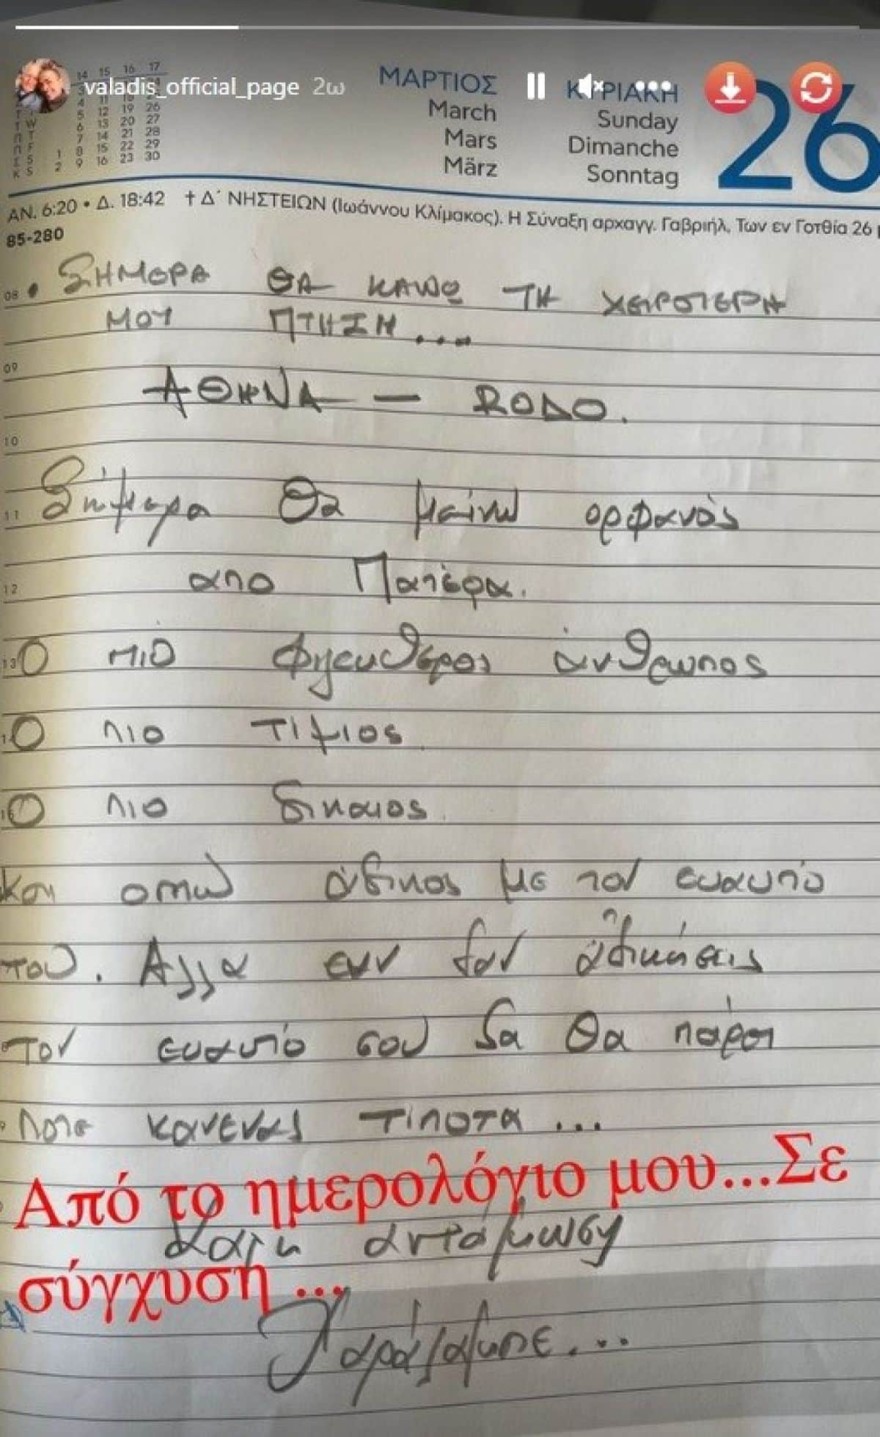 valadis_official_page 2ω
14 15 16 17
ΜΑΡΤΙΟΣ
March
Mars
März
ΚΥΡΙΑΚΗ
Sunday
Dimanche
Sonntag
26
ΑΝ. 6:20 • Δ. 18:42 † Δ΄ ΝΗΣΤΕΙΩΝ (Ιωάννου Κλίμακος). Η Σύναξη αρχαγγ. Γαβριήλ, Των εν Γοτθία 26
85-280
08 • ΣΗΜΕΡΑ ΘΑ ΚΑΝΩ ΤΗ ΧΕΙΡΟΤΕΡΗ
ΜΟΥ ΠΤΗΣΗ....
09
ΑΘΗΝΑ — RΟΔΟ.
10
11 Σήμερα Θα μείνω ορφανός
12 απο Πατέρα.
13 Ο πιο άνθρωπος
Ο πιο τίμιος
Ο πιο δικαιος
και άδικος με τον ευαυτό
του. Αλλα εαν δεν αδικήσεις
τον ευαυτό σου δα θα πάρει
ποτε κανενας τιποτα ...
Από το ημερολόγιο μου...Σε
Καλη αντάμωση
σύγχυση ...